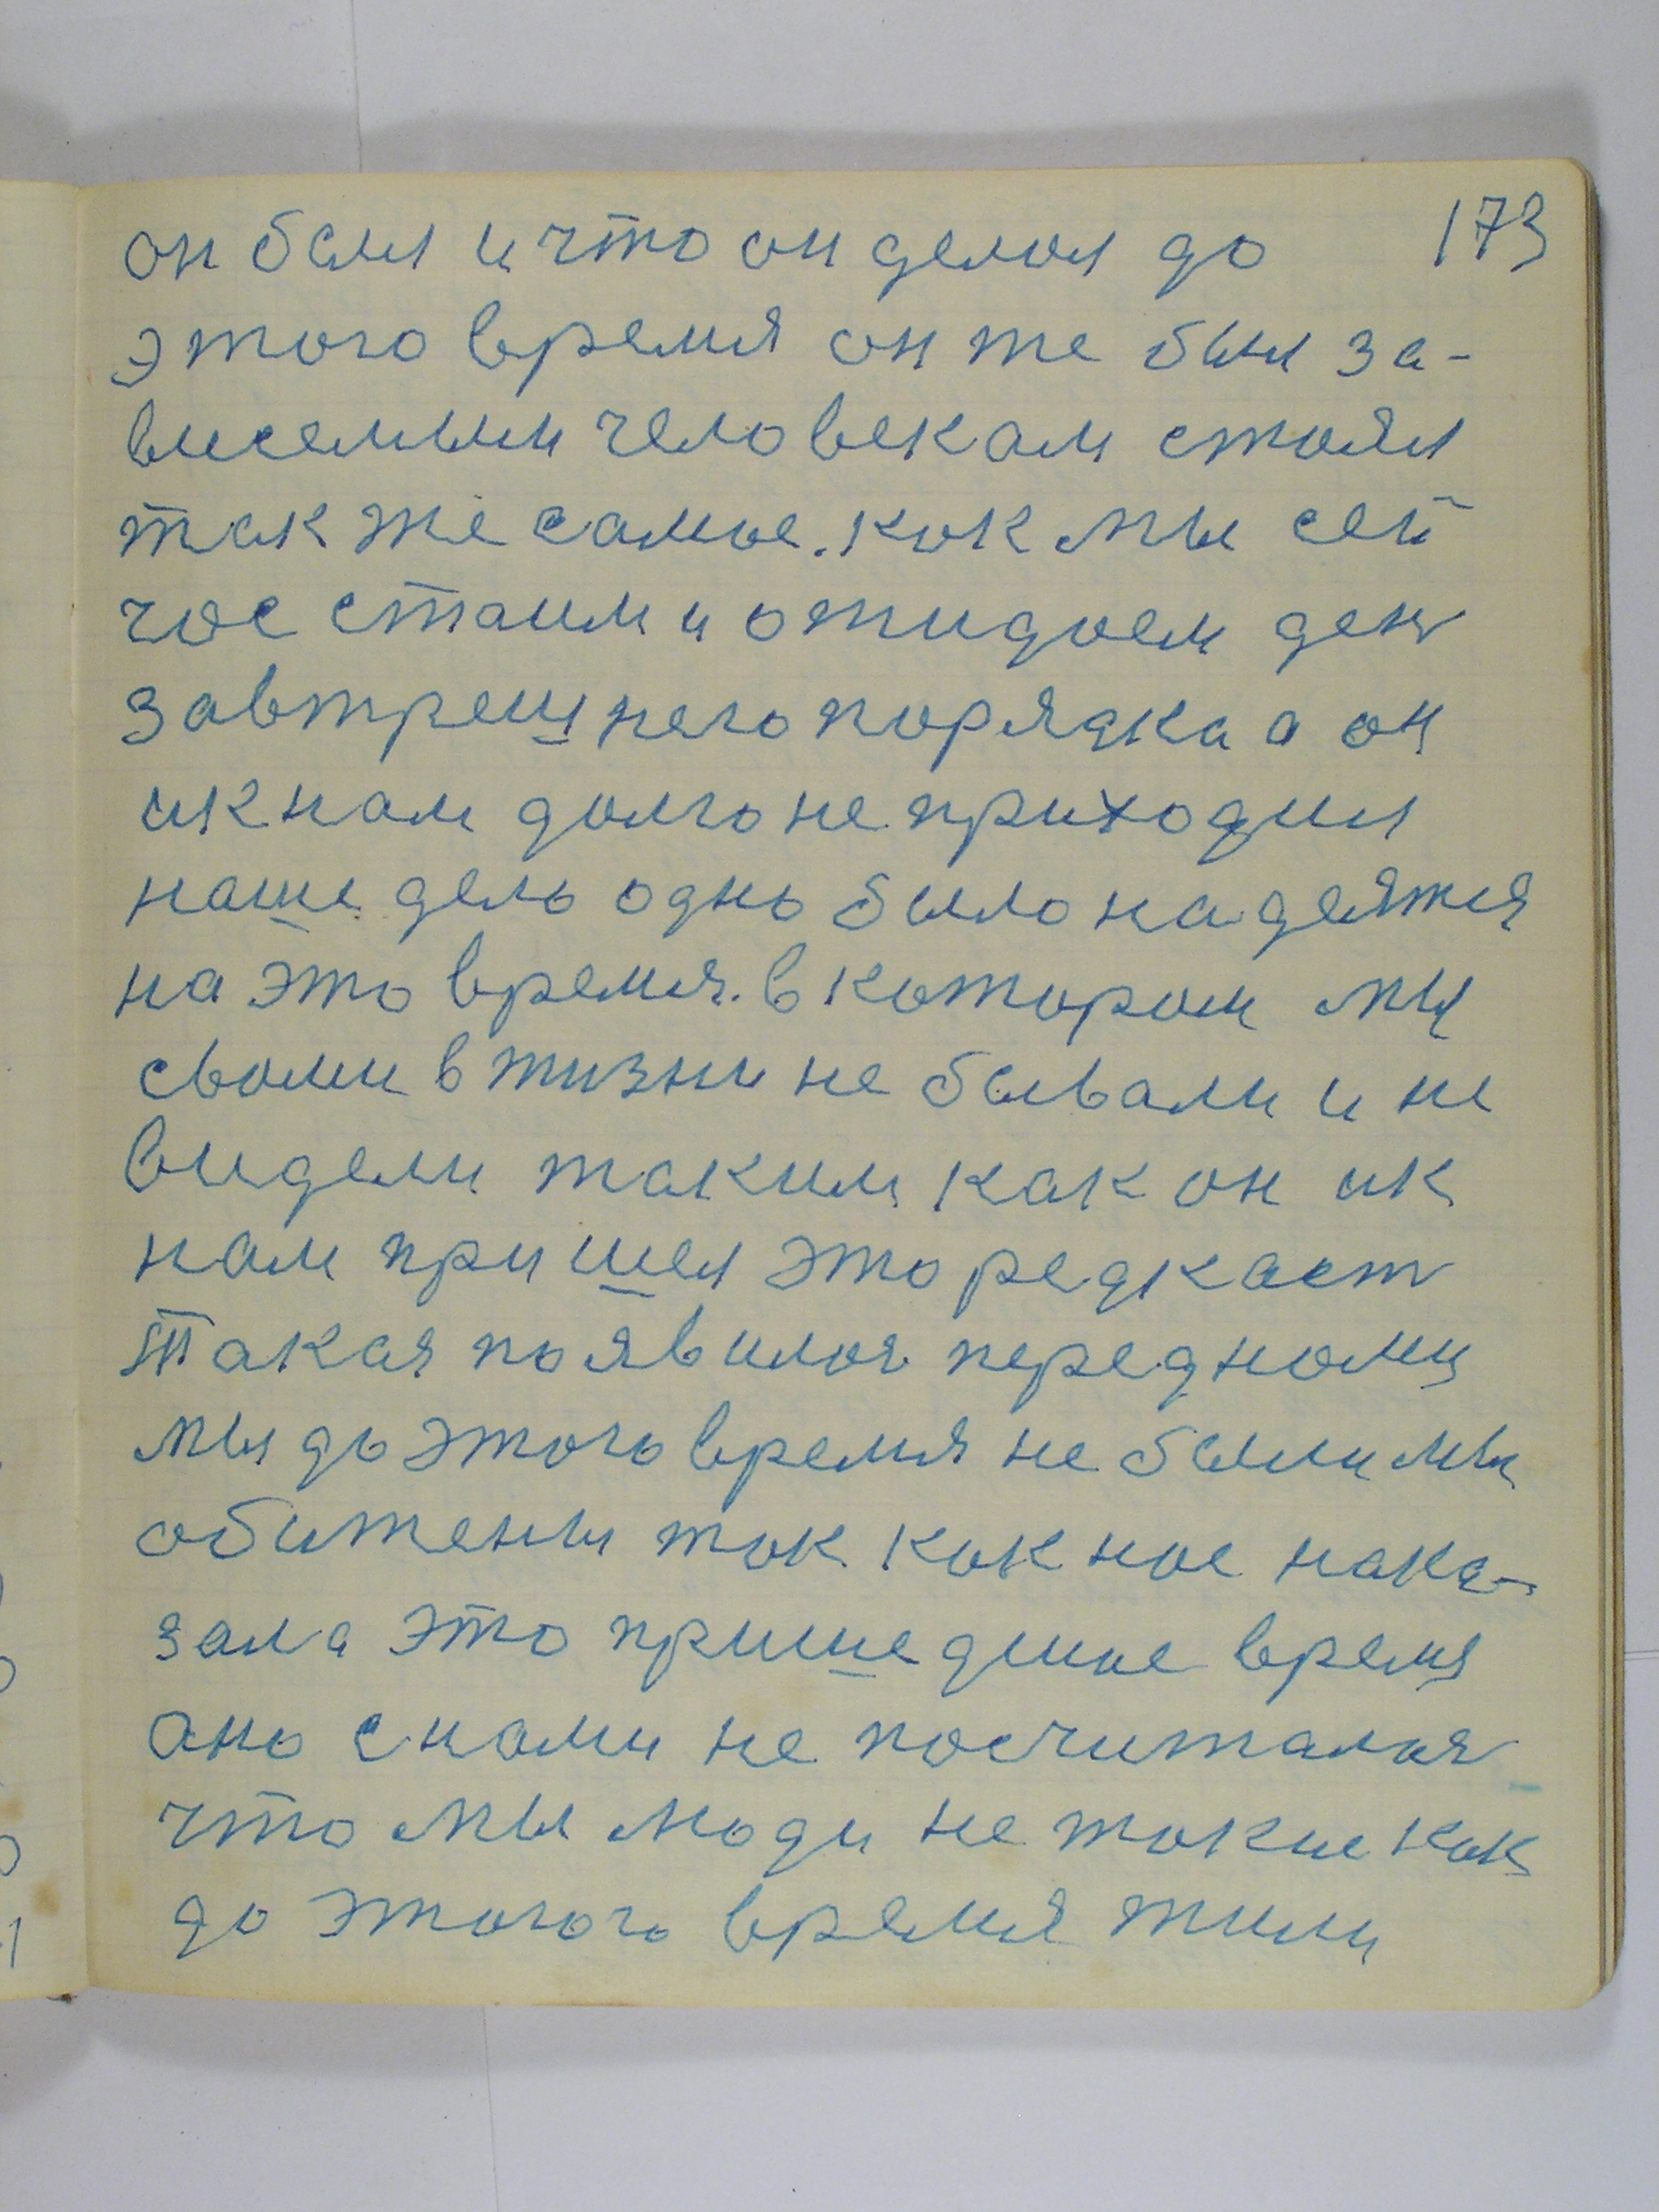 173
он был и что он делал до
этого время он же был за-
висемым человекам стоял
так же самое. как мы сей
час стаим и ожидаем ден
завтрешнего порядка а он
ик нам долго не приходил
наше дело одно было надеяжся
на это время. в котором мы
своми в жизни не бывали и не
видели таким как он ик
нам пришел это редкаст
такая появилося перед нами
мы до этого время не были мы
обижены так как нас нака-
зала это пришедшее время
ано с нами не посчиталося
что мы люди не такие как
до этогого время жили